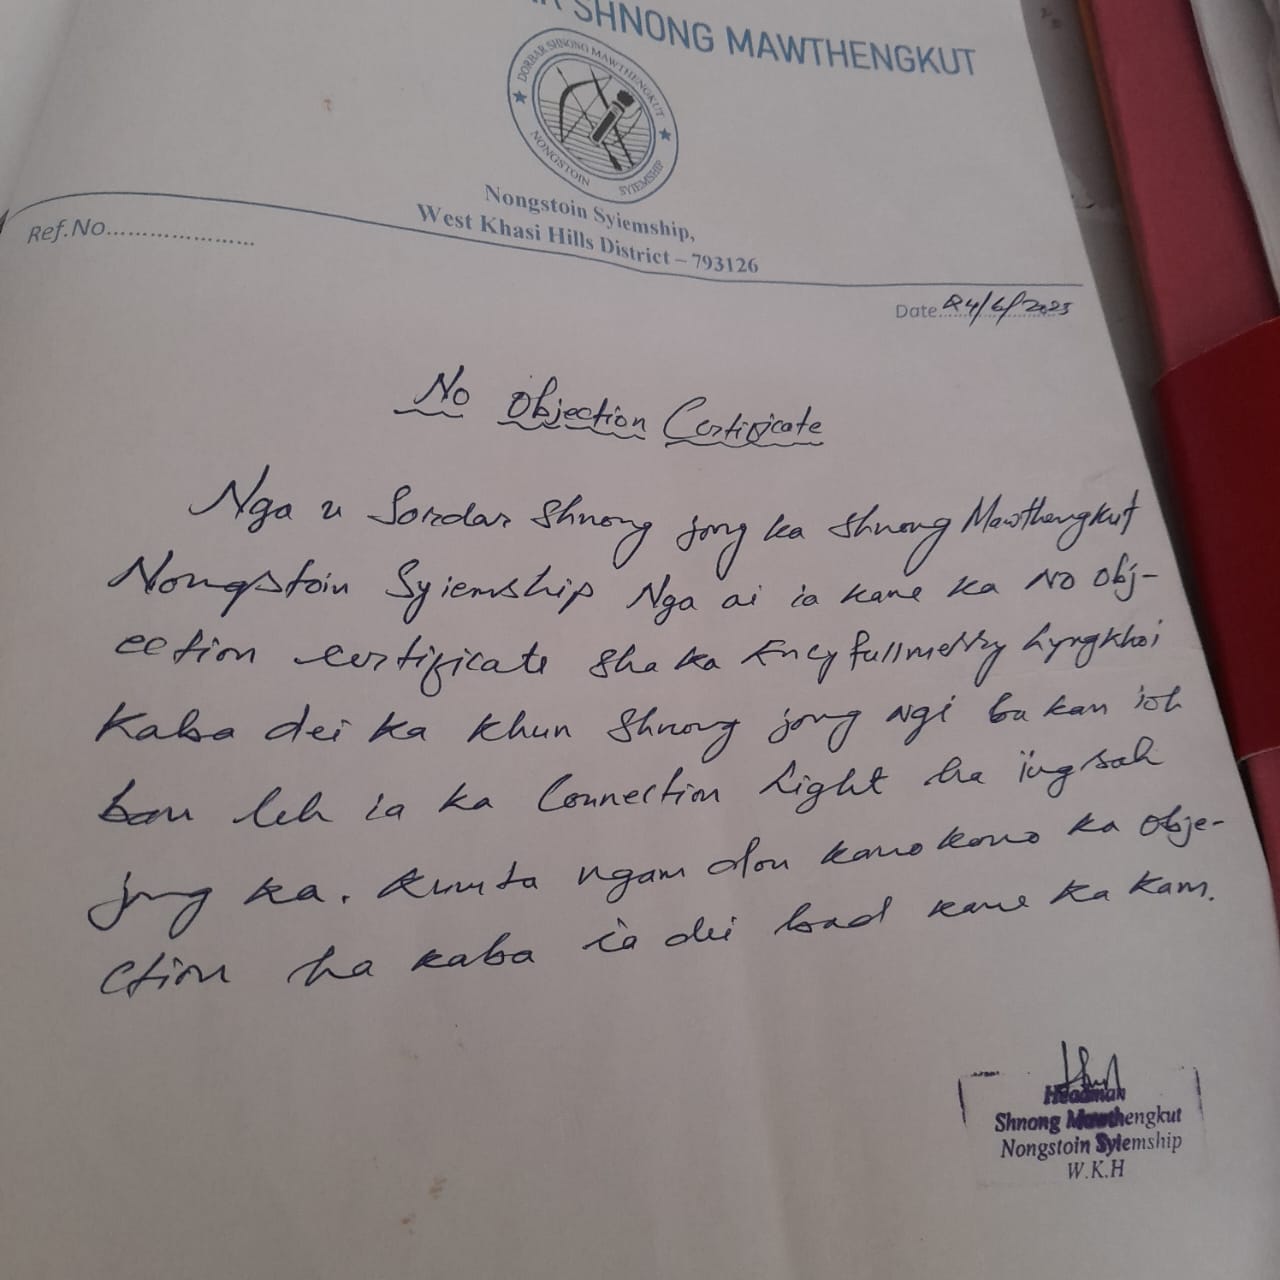 SHNONG MAWTHENGKUT
DORBAR SHNONG MAWTHENGKUT
NONGSTOIN SYIEMSHIP
Nongstoin Syiemship,
West Khasi Hills District – 793126
Ref.No.....................
Date 24/6/2025
No Objection Certificate
Nga u Sordar Shnong jong ka Shnong Mawthengkut
Nongstoin Syiemship Nga ai ia kane ka No Obj-
ection certificate sha ka Encyfullmerry Lyngkhoi
Kaba dei ka khun Shnong jong ngi ba kan ioh
ban leh ia ka Connection Light ha ïingsah
jong ka. Kumta ngam don kano kano ka Obje-
ction ha kaba ia dei bad kane ka kam.
Headman
Shnong Mawthengkut
Nongstoin Syiemship
W.K.H